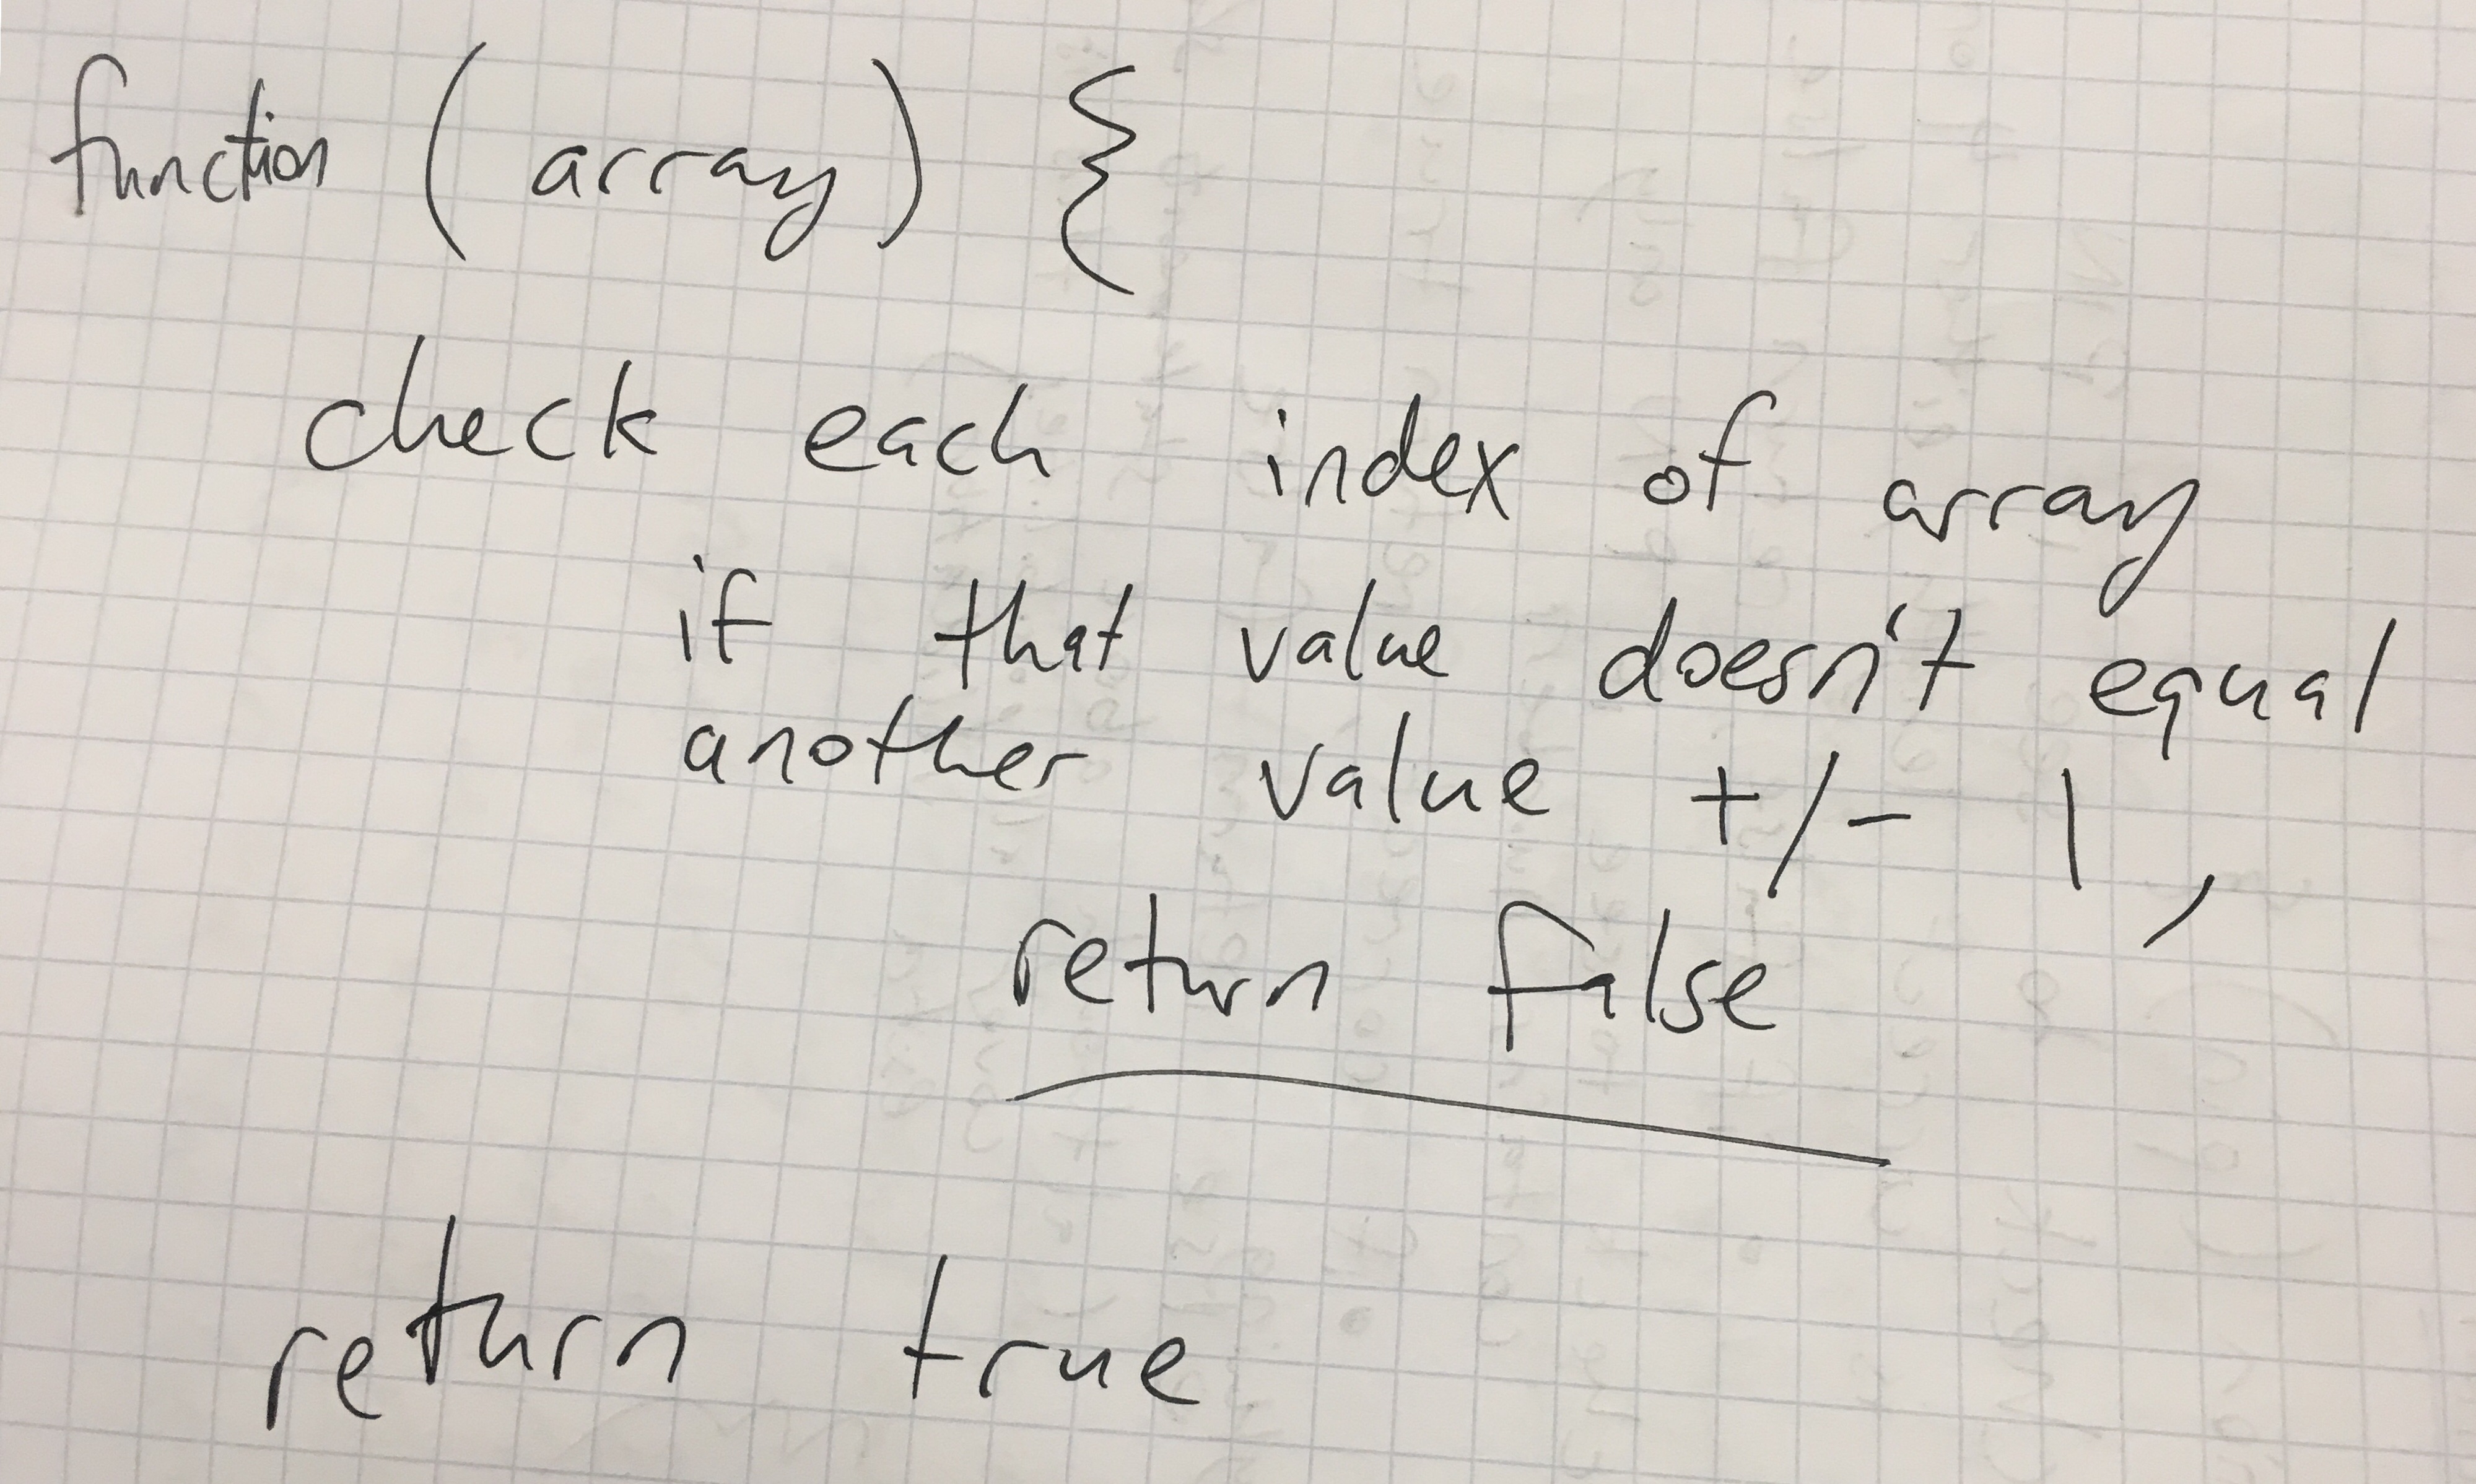 function (array) {
check each index of array
if that value doesn't equal
another value +/- 1,
return false
return true